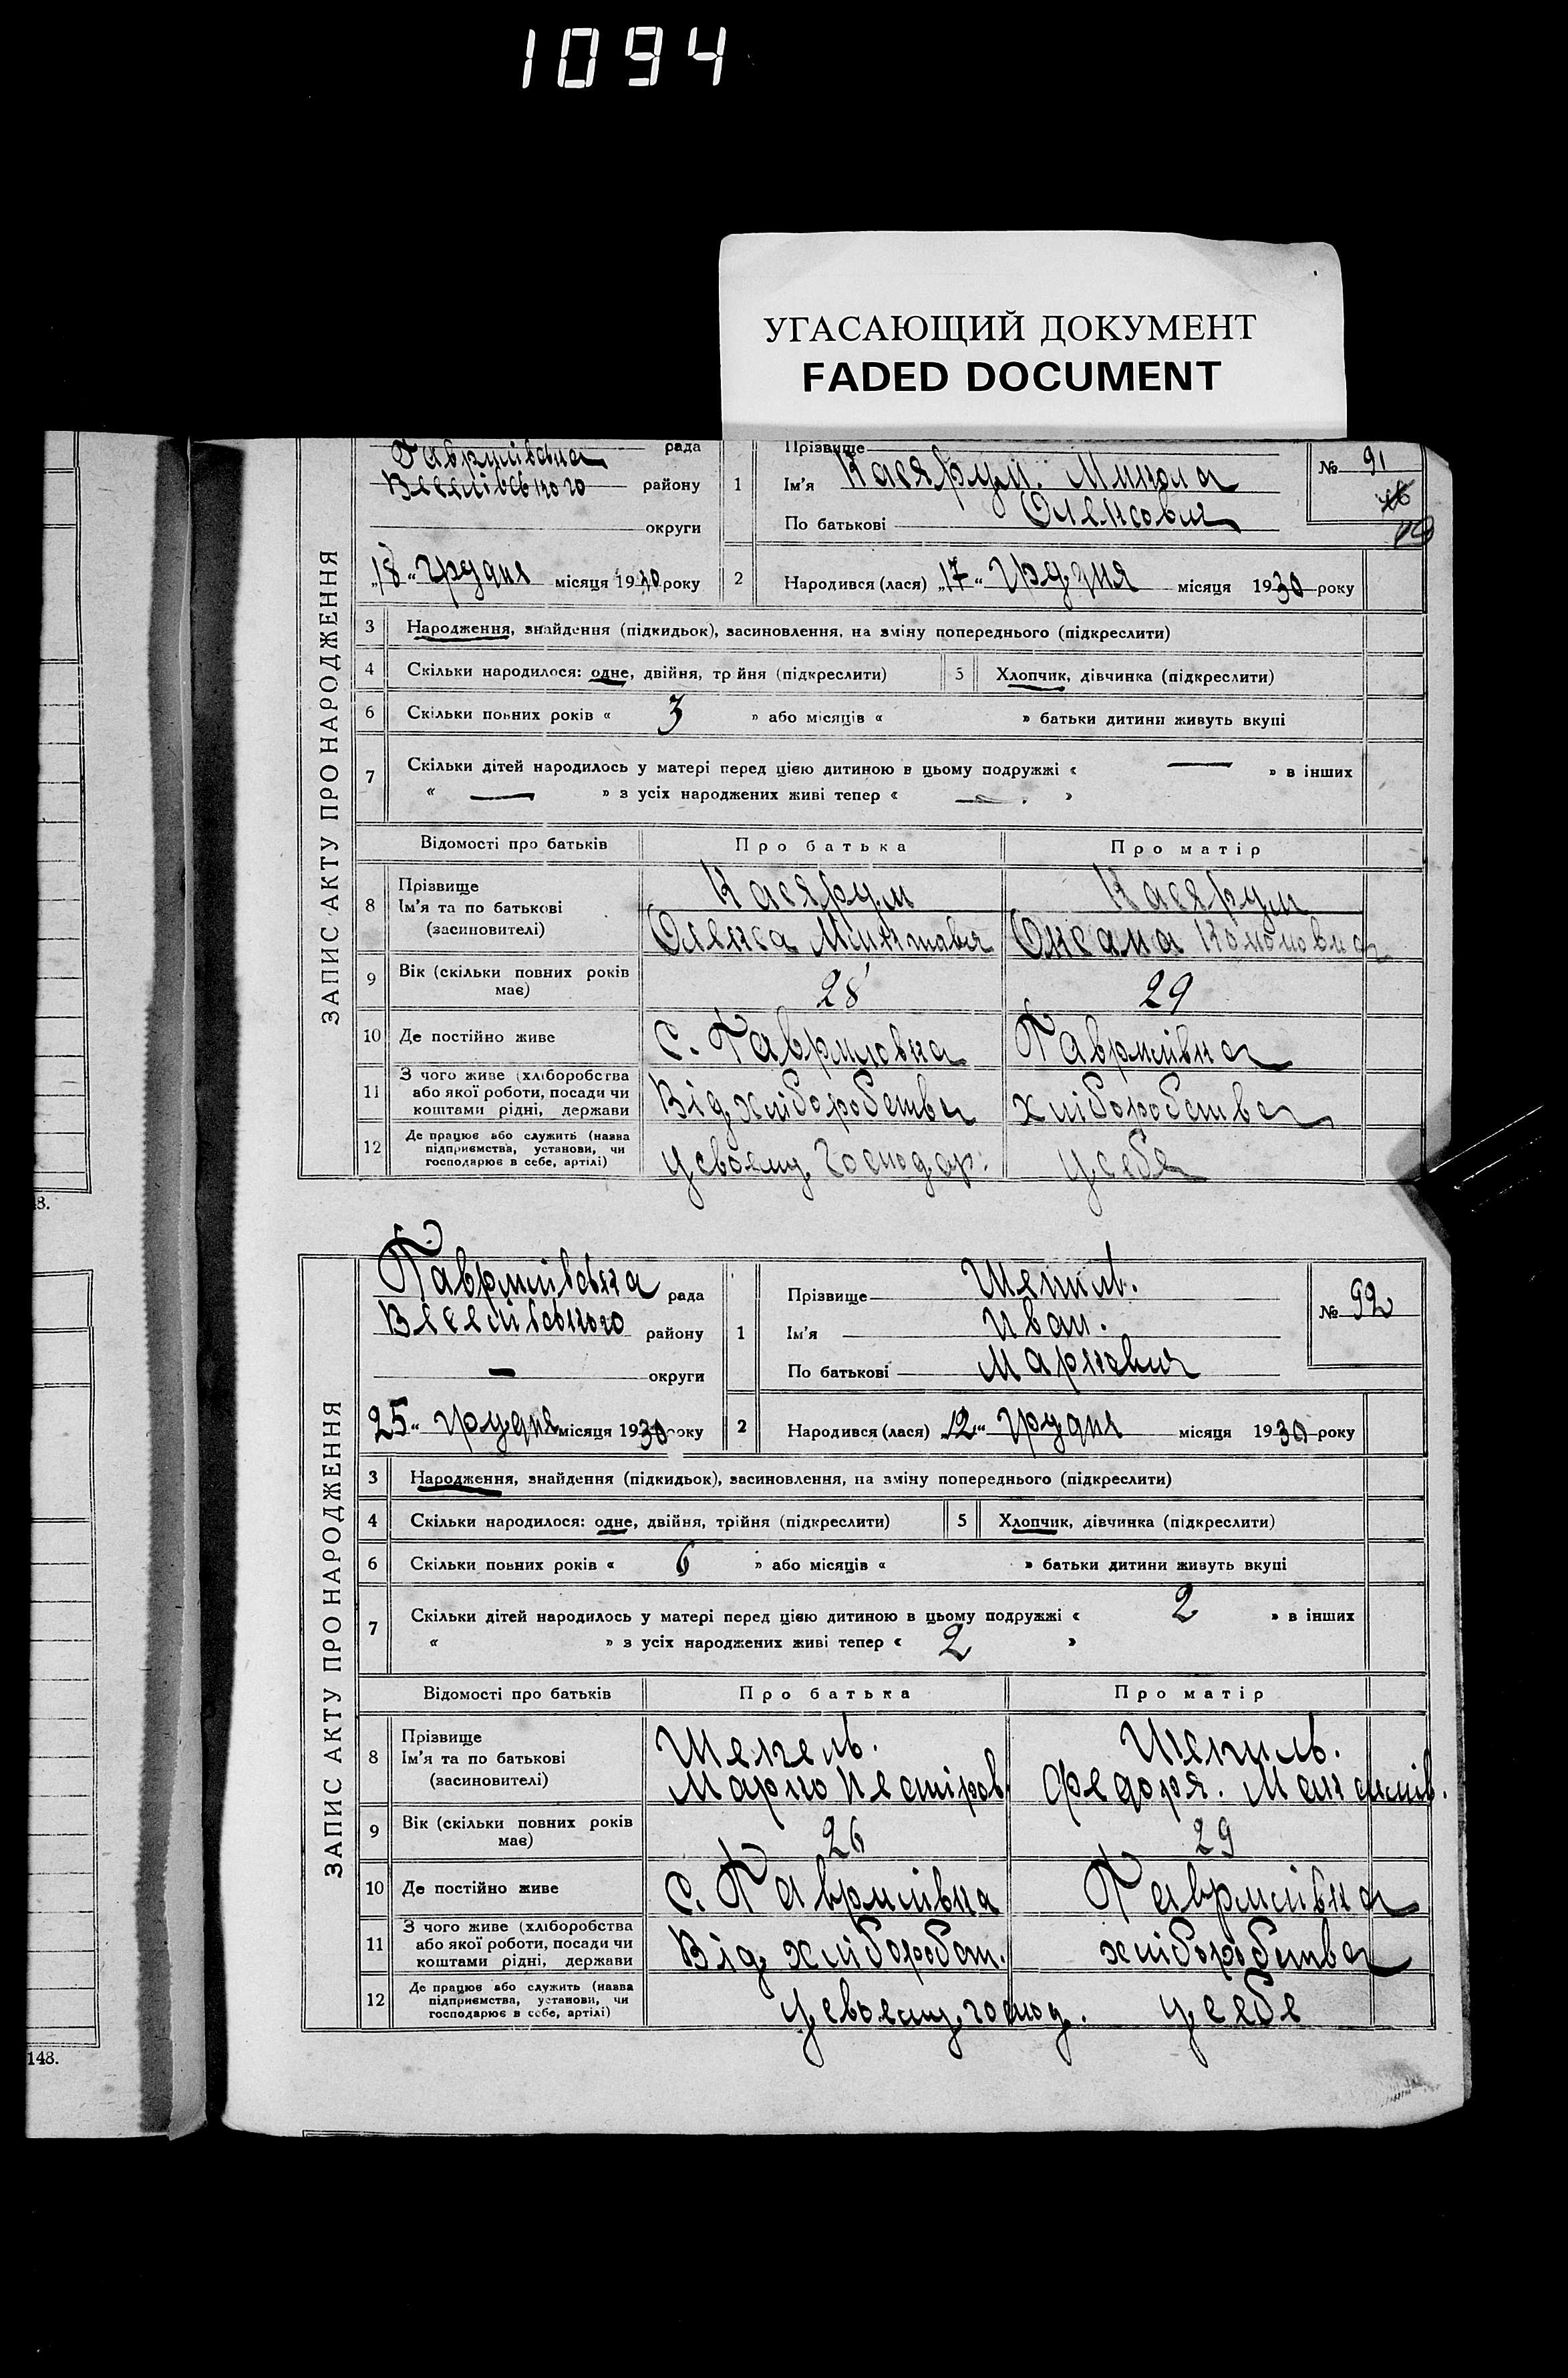 1094
УГАСАЮЩИЙ ДОКУМЕНТ
FADED DOCUMENT
ЗАПИС АКТУ ПРО НАРОДЖЕННЯ
Гаврилівська рада
Веселівського району
округи
1 Прізвище
Ім'я Касярум. Микола
По батькові Олексович
№ 91
„18“ грудня місяця 1930 року
2 Народився (лася) „17“ Грудня місяця 1930 року
3 Народження, знайдення (підкидьок), засиновлення, на зміну попереднього (підкреслити)
4 Скільки народилося: одне, двійня, трійня (підкреслити) 5 Хлопчик, дівчинка (підкреслити)
6 Скільки повних років « 3 » або місяців « » батьки дитини живуть вкупі
7 Скільки дітей народилось у матері перед цією дитиною в цьому подружжі « — » в інших
« — » з усіх народжених живі тепер « — »
Відомості про батьків Про батька Про матір
8 Прізвище Касярум Касярум
Ім'я та по батькові
(засиновителі) Олекса Оксана Кононовна
9 Вік (скільки повних років має) 28 29
10 Де постійно живе с. Гавриловка Гаврилівка
11 З чого живе (хліборобства або якої роботи, посади чи коштами рідні, держави Від хліборобства хліборобства
12 Де працює або служить (назва підприємства, установи, чи господарює в себе, артілі) у своему господар: у себе
ЗАПИС АКТУ ПРО НАРОДЖЕННЯ
Гаврилівська рада
Веселівського району
— округи
1 Прізвище Шепиль.
Ім'я Иван.
По батькові Маркович
№ 92
25“ грудня місяця 1930 року
2 Народився (лася) „12“ грудня місяця 1930 року
3 Народження, знайдення (підкидьок), засиновлення, на зміну попереднього (підкреслити)
4 Скільки народилося: одне, двійня, трійня (підкреслити) 5 Хлопчик, дівчинка (підкреслити)
6 Скільки повних років « 6 » або місяців « » батьки дитини живуть вкупі
7 Скільки дітей народилось у матері перед цією дитиною в цьому подружжі « 2 » в інших
« » з усіх народжених живі тепер « 2 »
Відомості про батьків Про батька Про матір
8 Прізвище Шепель. Шепиль.
Ім'я та по батькові
(засиновителі) Марко Нестіров Федоря.
9 Вік (скільки повних років має) 26 29
10 Де постійно живе с. Гаврилівка Гаврилівка
11 З чого живе (хліборобства або якої роботи, посади чи коштами рідні, держави Від хліборобст. хліборобства
12 Де працює або служить (назва підприємства, установи, чи господарює в себе, артілі) у своему господ. у себе
148.